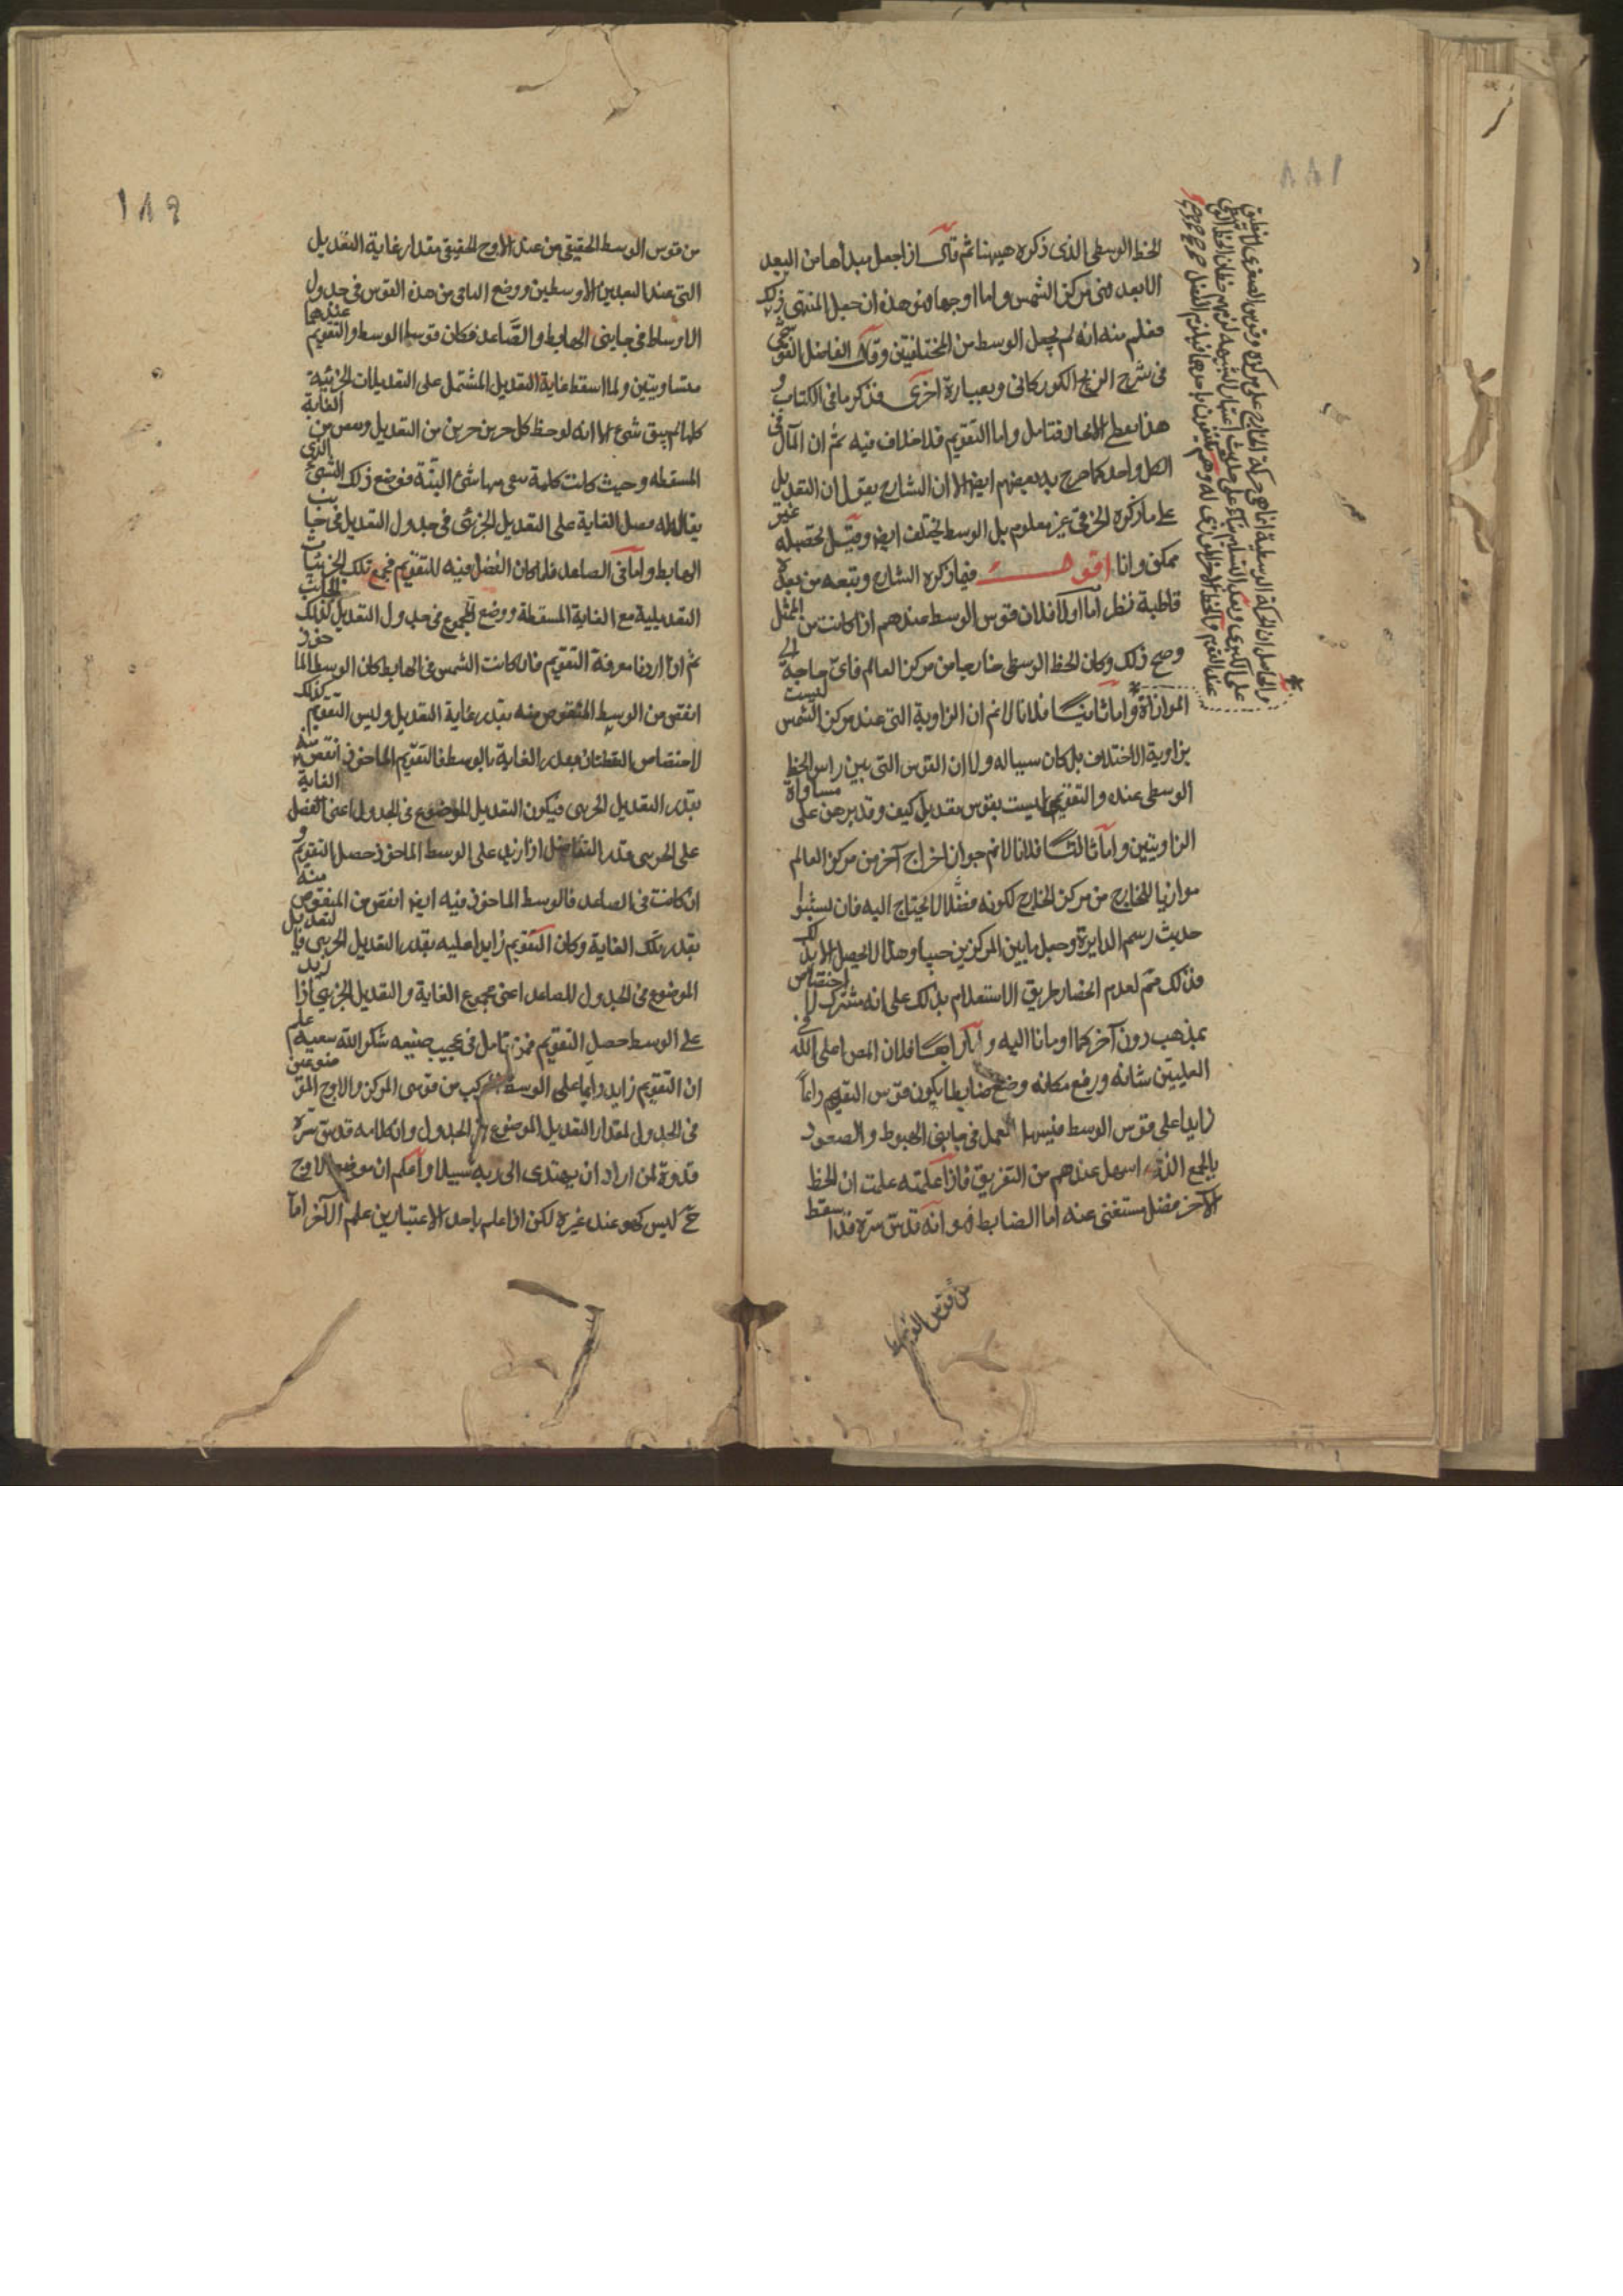 ١٨٨
الخط الوسطى الذى ذكره هيهنا ثم قال اذا جعل مبدأها من البعد
الابعد وهى مركز الشمس واما اوجها وهو هذه ان جعل المنتهى ذلك
فعلم منه انه لم يجعل الوسط من المختلفتين وقال الفاضل القوشجى
فى شرح الزيج الكوركانى وبعبارة اخرى فذكر ما فى الكتاب و
هذا فتامل واما التقويم فلا خلاف فيه ثم ان المآل فى
الكل واحد كما صرح به بعضهم ايضا الا ان الشارح يقول ان التعديل
على ما ذكره الخرقى غير معلوم بل الوسط يختلف ايضا وقيل تحصيله غير
ممكن وانا اقول فيما ذكره الشارح وتبعه من بعده
قاطبة نظر اما اولا فلان قوس الوسط عندهم اذا كانت من الممثل
وصح ذلك وكان الخط الوسطى خارجا من مركز العالم فاى حاجة الى
الموازاة واما ثانيا فلانا لانم ان الزاوية التى عند مركز الشمس ليست
بزاوية الاختلاف بل كان سبيا له ولا ان القوس التى بين راس الخط
الوسطى عنده والتقويمى ليست بقوس تعديل كيف وقد برهن على مساواة
الزاويتين واما ثالثا فلانا لانم جواز اخراج آخر من مركز العالم
موازيا للخارج من مركز الخارج لكونه مفضلا لا يحتاج اليه فان
حديث رسم الدايرة وجعل ما بين المركزين حيبا وهذا لا يحصل الا بذلك
فذلك مم لعدم انحصار طريق الاستعلام بذلك على انه مشترك لا اختصاص
بمذهب دون آخر كما اومانا اليه واما رابعا فلان المص اعلى الله فى
العليين شانه ورفع مكانه وضع ضابطا يكون قوس التقويم دائماً
زايدا على قوس الوسط فيسهل العمل فى جانبى الهبوط والصعود
بالجمع الذى اسهل عندهم من التفريق فاذا علمته علمت ان الخط
الآخر مفضل مستغنى عنه اما الضابط فهو انه قدس سره قد اسقط
من قوس الوسط
والحاصل ان الحركة الوسطية انما هى حركة الخارج على مركزه وقوس الصغرى
على الكبرى وبعد التسليم بناء على حديث اعتبار الشبيهة لزم خطان الخط الذى
عند القوم والخط الآخر الموازى له وهم يكتفون باحدهما فيلزم الفضل
١٨٩
من قوس الوسط الحقيقى من عند الاوج الحقيقى مقدار غاية التعديل
التى عند البعدين الاوسطين ووضع الباقى من هذه القوس فى جدول
الاوساط فى جانبى الهابط والصاعد فكان قوسا الوسط والتقويم عندهما
متساويتين ولما اسقط غاية التعديل المشتمل على التعديلات الجزئية
كلها لم يبق شئ الا انه لوحظ كل جزء من التعديل من الغاية
المسقطه وحيث كانت كلمة شئ البتة فوضع ذلك الشئ الذى
يقال له فضل الغاية على التعديل الجزئى فى جدول التعديل فى جانب
الهابط واما فى الصاعد فلما كان الفضل فيه للتقويم فجمع تلك الجزئيات
التعديلية مع الغاية المسقطة ووضع المجموع فى جدول التعديل كذلك الجانب
ثم اذا اردنا معرفة التقويم فان كانت الشمس فى الهابط كان الوسط الماخوذ
انقص من الوسط المنقوص منه بقدر غاية التعديل وليس التقويم كذلك
لاختصاص النقصان بقدر الغاية بالوسط فالتقويم الماخوذ انقص منه
بقدر التعديل الجزئى فيكون التعديل الموضوع فى الجدول اعنى الفضل الغاية
على الجزئى قدر التفاضل اذا زيد على الوسط الماخوذ حصل التقويم و
ان كانت فى الصاعد فالوسط الماخوذ فيه ايضا انقص من المنقوص منه
بقدر تلك الغاية وكان التقويم زايدا عليه بقدر التعديل الجزئى فالتعديل
الموضوع فى الجدول للصاعد اعنى مجموع الغاية والتعديل الجزئى اذا زيد
على الوسط حصل التقويم فمن تامل فى عجيب صنيعه شكر الله سعيه علم
ان التقويم زايد دايما على الوسط المركب من قوسى المركز والاوج الموضوعين
فى الجدول لمقدار التعديل الموضوع فى الجدول وان كلامه قدس سره
قدوة لمن اراد ان يهتدى الى ربه سبيلا واعلم ان موضع الاوج
ح ليس كهو عند غيره لكن اذا علم باحد الاعتبارين علم الآخر اما